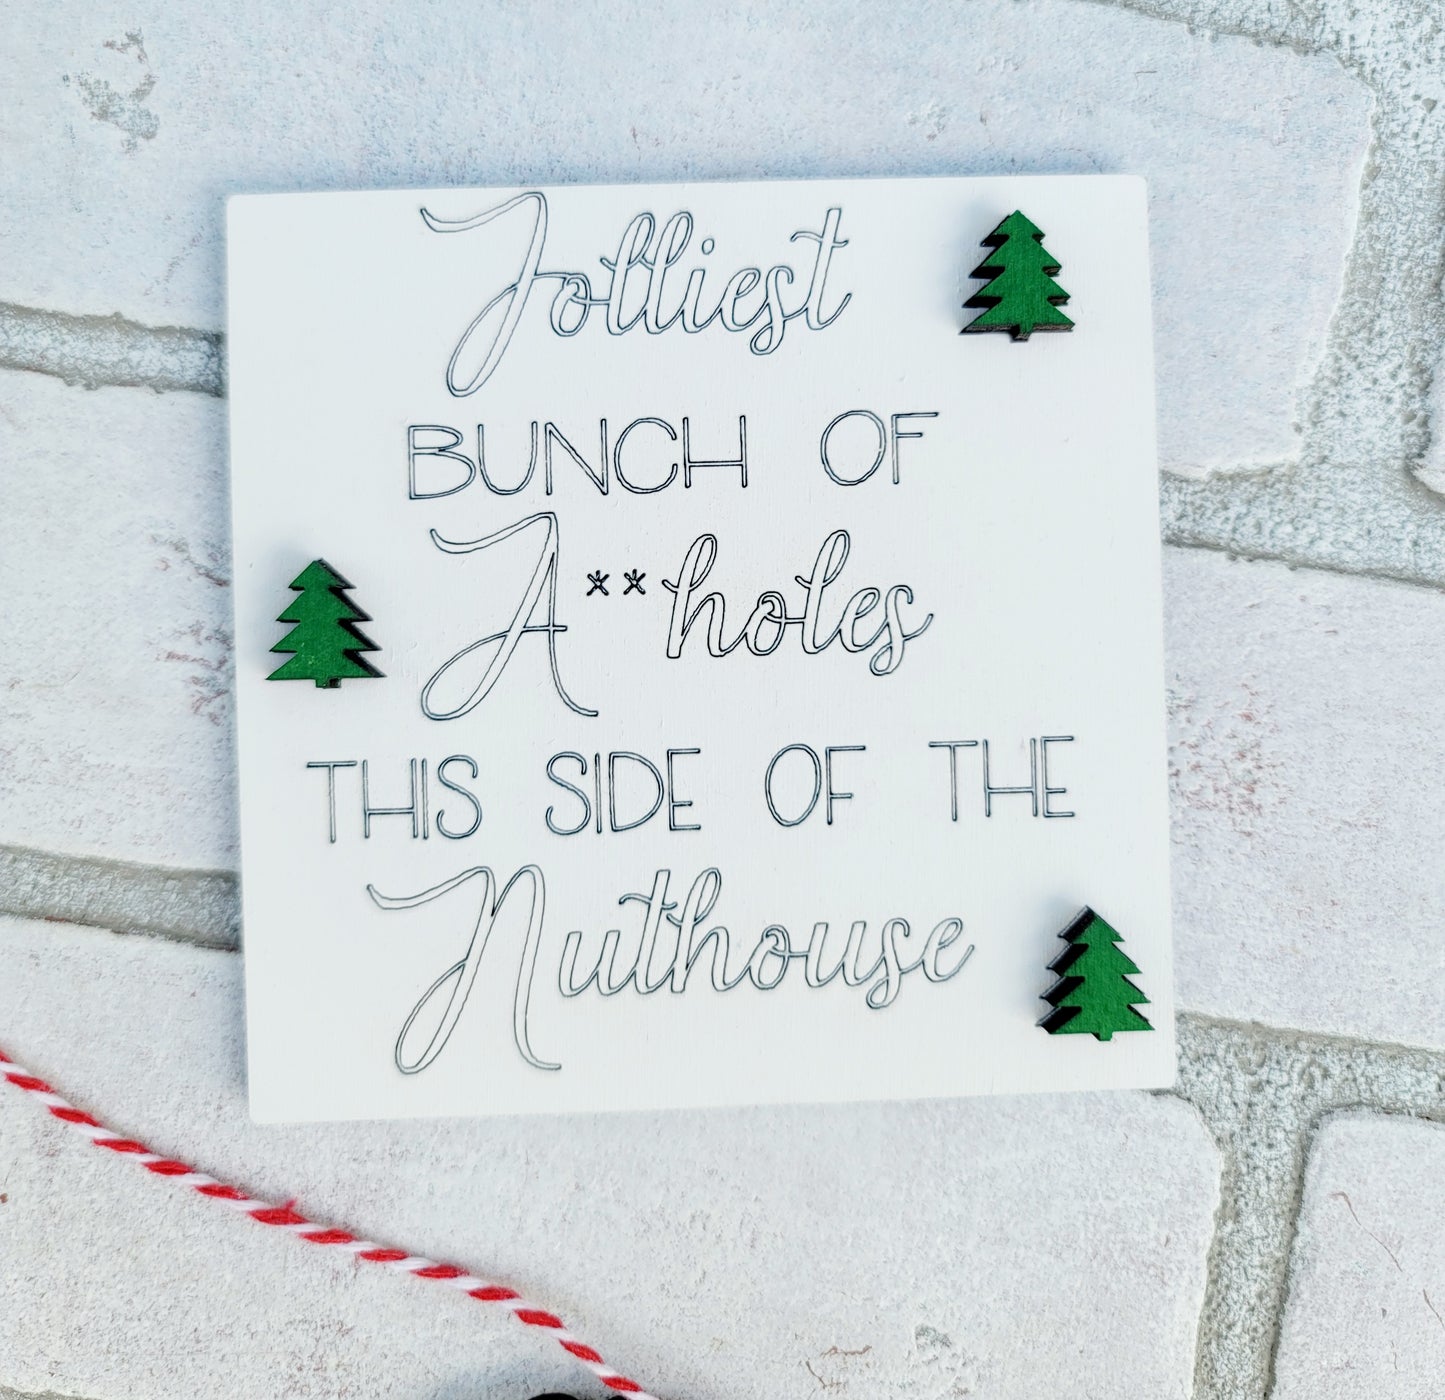 Jolliest
BUNCH OF
A**holes
THIS SIDE OF THE
Nuthouse